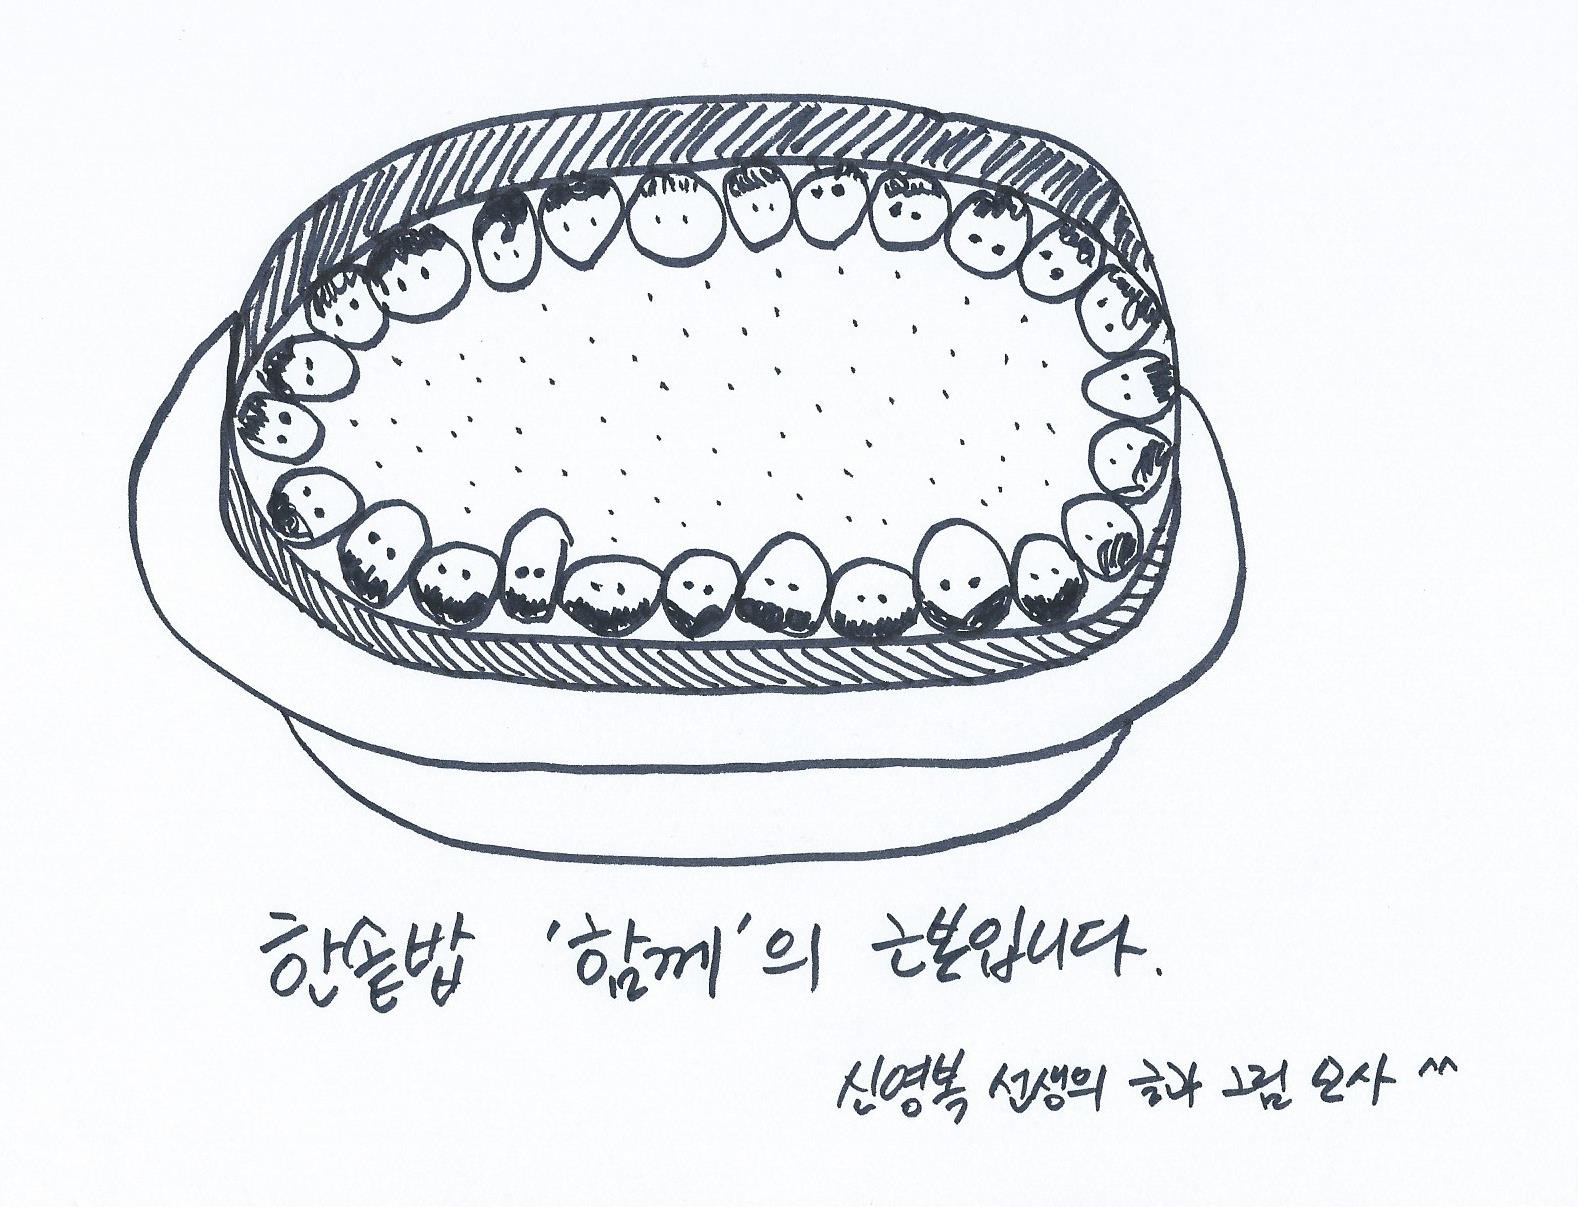 한솥밥 '함께'의 근본입니다.
신영복 선생의 글과 그림 모사 ^^